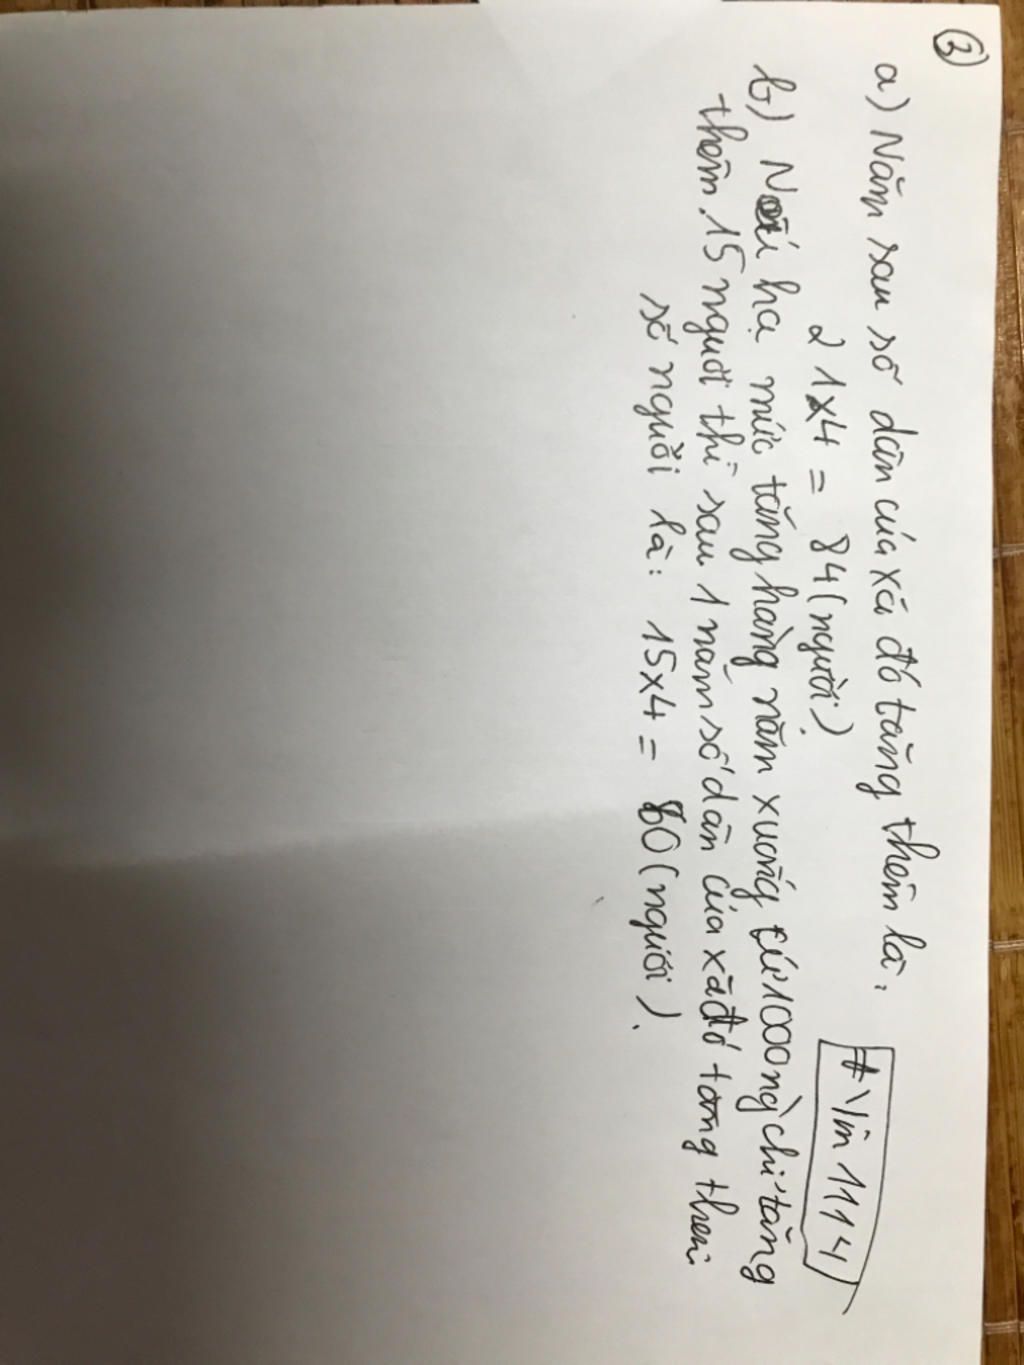 ②
a) Năm sau số dân của xã đó tăng thêm là:
21x4 = 84 (người)
b) Nếu hạ mức tăng hàng năm xuống cứ 1000 ng` chỉ tăng
thêm 15 người thì sau 1 năm số dân của xã đó tăng thêm
số người là: 15x4 = 60 (người).
1114